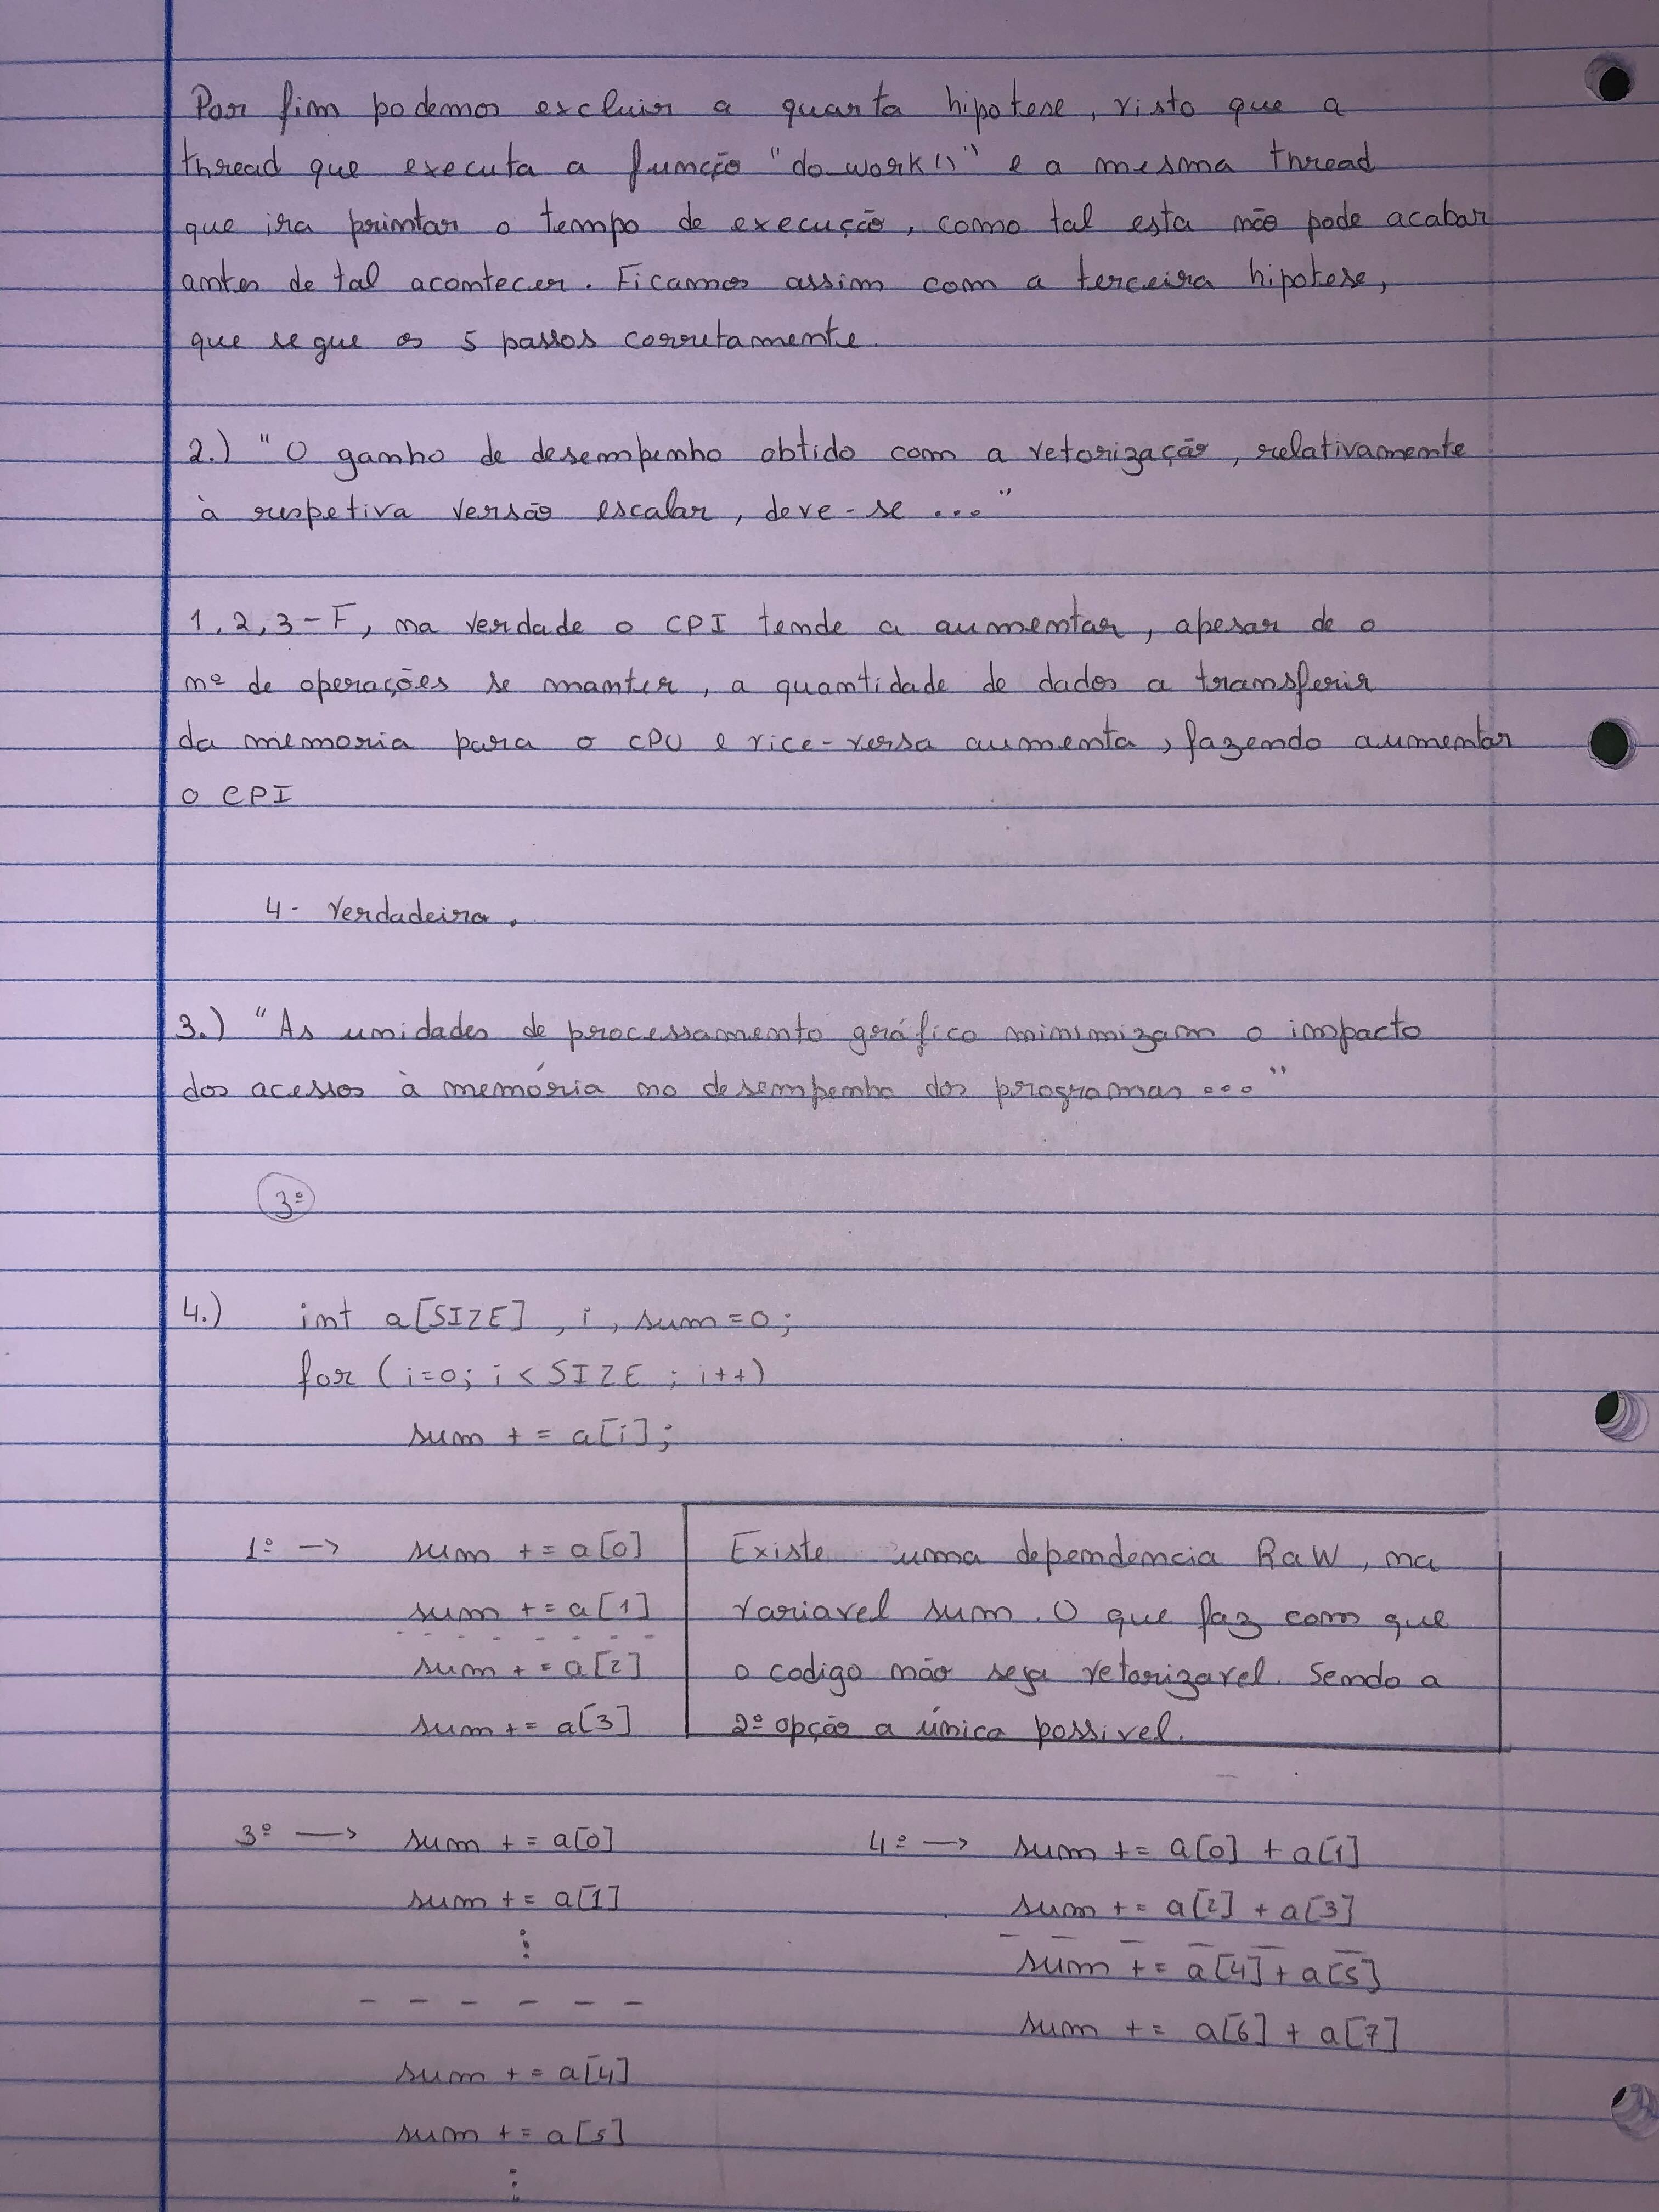 Por fim podemos excluir a quarta hipotese, visto que a
thread que executa a função "do_work()" e a mesma thread
que ira printar o tempo de execução, como tal esta não pode acabar
antes de tal acontecer. Ficamos assim com a terceira hipotese,
que segue os 5 passos corretamente.
2.) "O ganho de desempenho obtido com a vetorização, relativamente
à respetiva versão escalar, deve-se ..."
1, 2, 3 - F, na verdade o CPI tende a aumentar, apesar de o
nº de operações se manter, a quantidade de dados a transferir
da memoria para o CPU e vice-versa aumenta, fazendo aumentar
o CPI
4 - Verdadeira.
3.) "As unidades de processamento gráfico minimizam o impacto
dos acessos à memória no desempenho dos programas ..."
3º
4.) int a[SIZE], i, sum=0;
for (i=0; i < SIZE ; i++)
sum += a[i];
1º → sum += a[0]
sum += a[1]
sum += a[2]
sum += a[3]
Existe uma dependencia RaW, na
variavel sum. O que faz com que
o codigo não seja vetorizavel. Sendo a
2º opção a única possivel.
3º → sum += a[0]
sum += a[1]
⋮
- - - - - -
sum += a[4]
sum += a[5]
⋮
4º → sum += a[0] + a[1]
sum += a[2] + a[3]
sum += a[4] + a[5]
sum += a[6] + a[7]